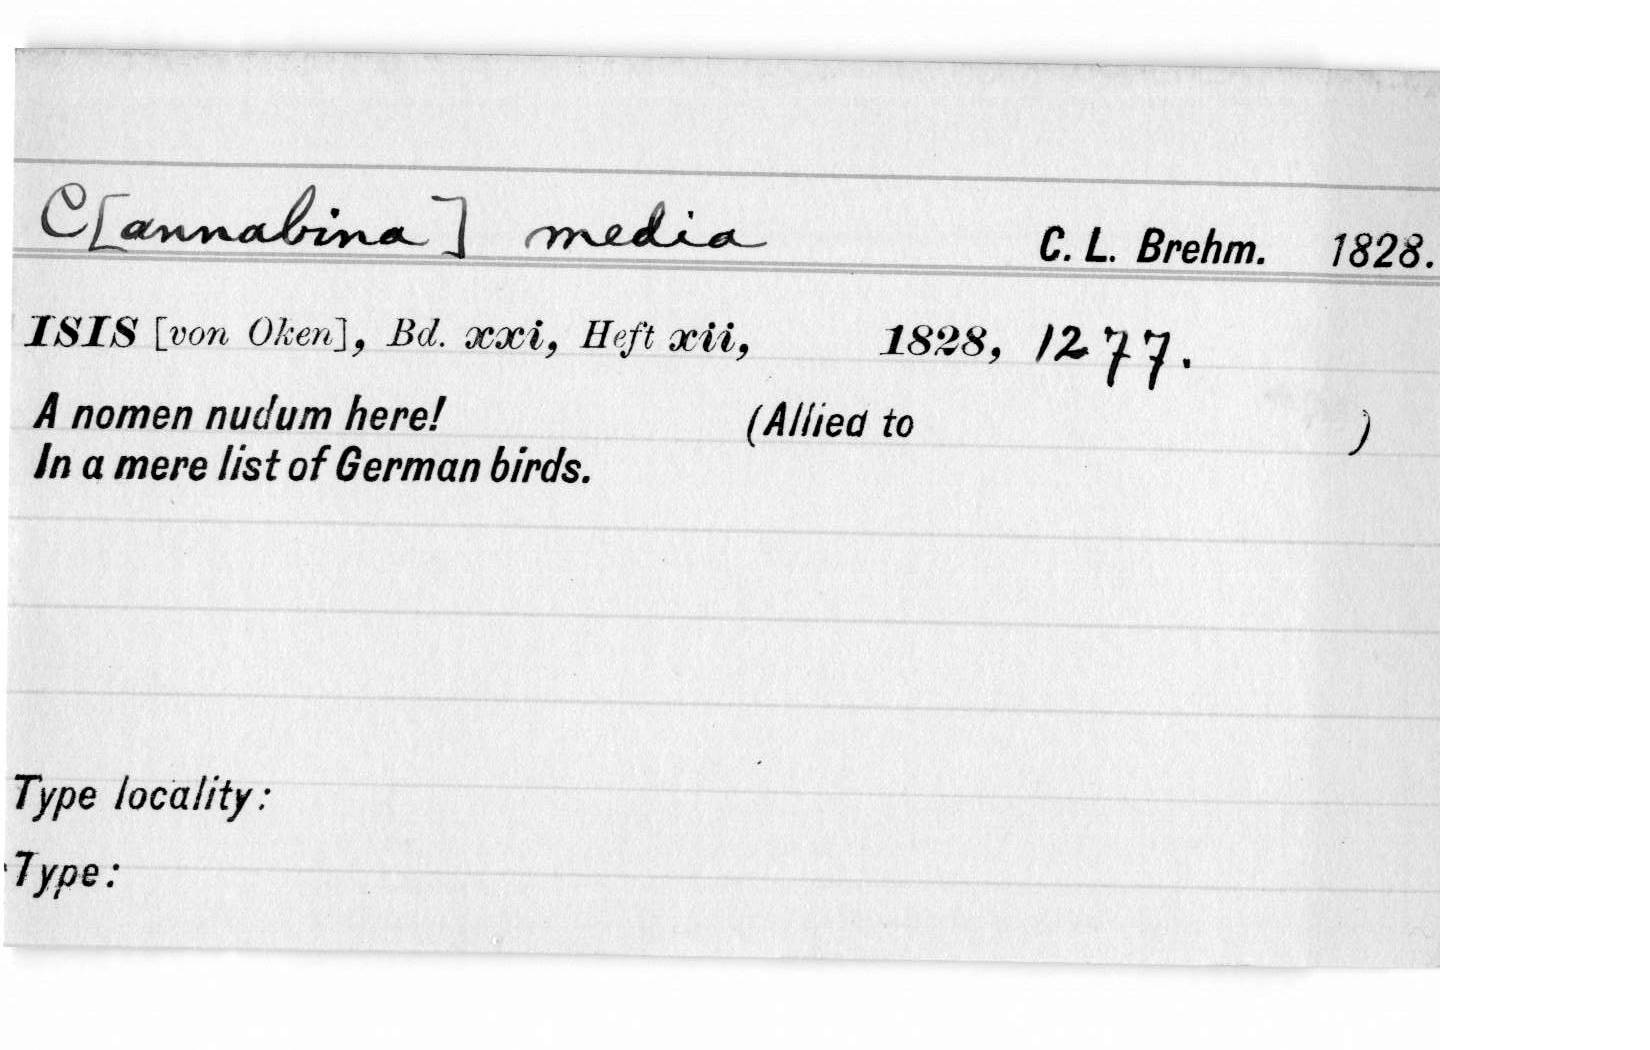 C[annabina] media C. L. Brehm. 1828.
ISIS [von Oken], Bd. xxi, Heft xii, 1828, 1277.
A nomen nudum here! (Allied to )
In a mere list of German birds.
Type locality:
Type: